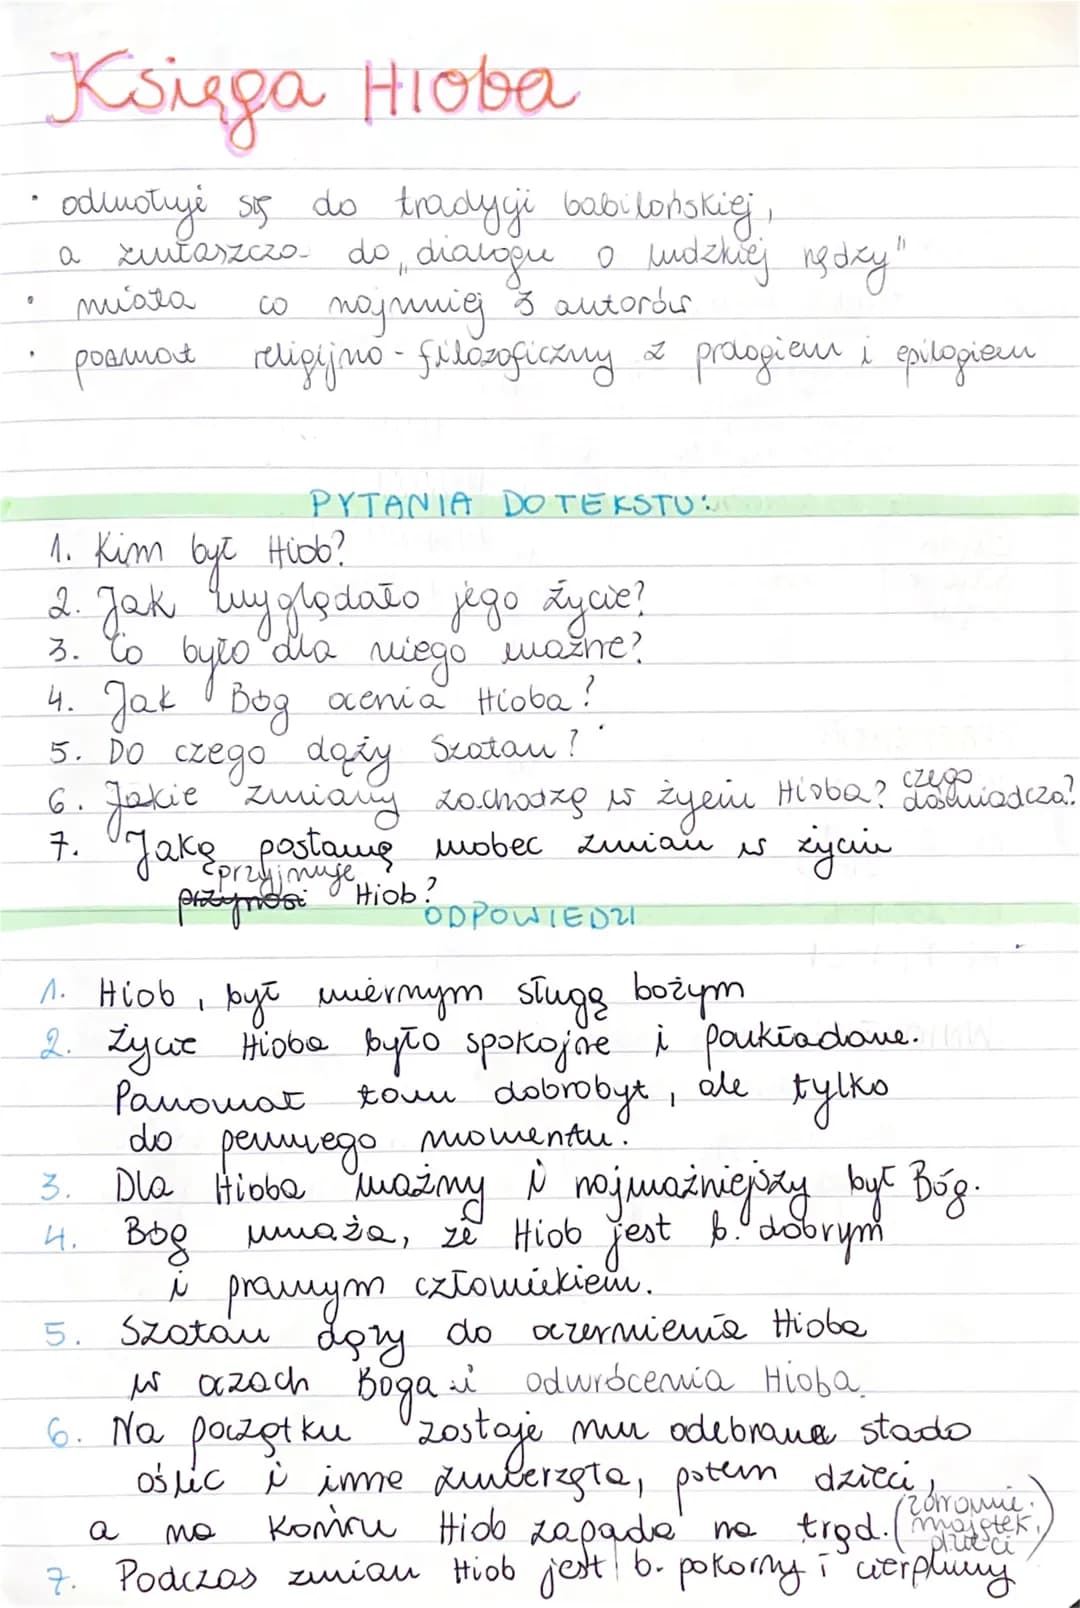 Księga Hioba
• odwołuje się do tradycji babilońskiej,
a zwłaszcza do „dialogu o ludzkiej nędzy"
• miała co najmniej 3 autorów
• poemat religijno - filozoficzny z prologiem i epilogiem
PYTANIA DO TEKSTU:
1. Kim był Hiob?
2. Jak wyglądało jego życie?
3. Co było dla niego ważne?
4. Jak Bóg ocenia Hioba?
5. Do czego dąży Szatan?
6. Jakie zmiany zachodzą w życiu Hioba? czego doświadcza?
7. Jaką postawę wobec zmian w życiu
przynosi przyjmuje Hiob?
ODPOWIEDZI
1. Hiob, był wiernym sługą bożym
2. Życie Hioba było spokojne i poukładane.
Panował tam dobrobyt, ale tylko
do pewnego momentu.
3. Dla Hioba ważny i najważniejszy był Bóg.
4. Bóg uważa, że Hiob jest b. dobrym
i prawym człowiekiem.
5. Szatan dąży do oczernienia Hioba
w oczach Boga i odwrócenia Hioba.
6. Na początku zostaje mu odebrana stado
oślic i inne zwierzęta, potem dzieci,
a na końcu Hiob zapada na trąd. (zdrowie, majątek, dzieci)
7. Podczas zmian Hiob jest b. pokorny i cierpliwy